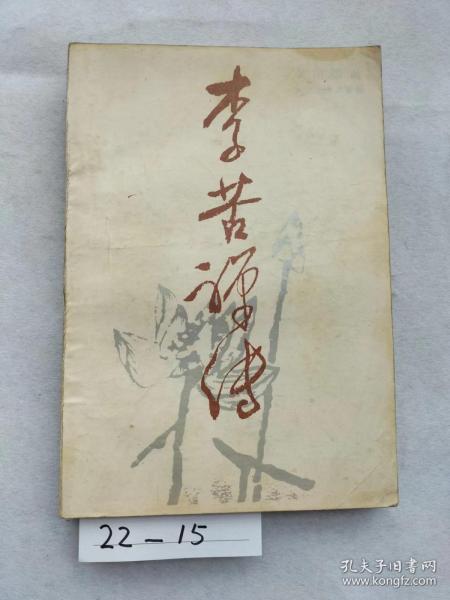 李苦禅传
22-15
孔夫子旧书网
www.kongfz.com